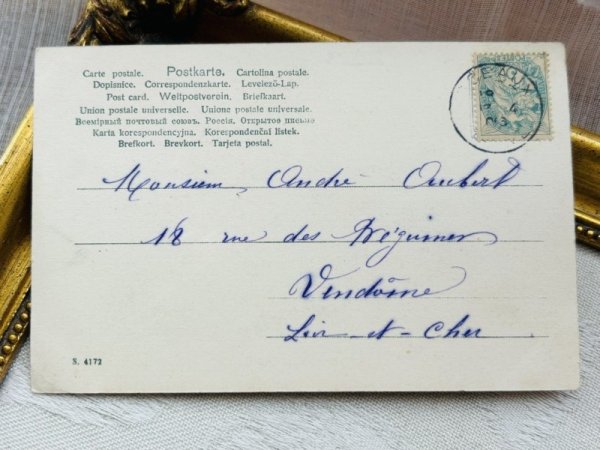 Carte postale. Postkarte. Cartolina postale.
Dopisnice. Correspondenzkarte. Levelező-Lap.
Post card. Weltpostverein. Briefkaart.
Union postale universelle. Unione postale universale.
Всемірный почтовый союзъ. Россія. Открытое письмо
Karta korespondencyjna. Korespondenční lístek.
Brefkort. Brevkort. Tarjeta postal.
Monsieur André Aubert
18 rue des Béguines
Vendôme
Loir-et-Cher
S. 4172